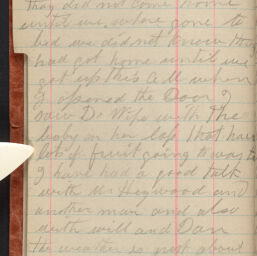 they did not come home
until we where gone to
bed we did not know they
had got home until we
got up this A M when
I opened the Door I
saw De Wife with the
baby on her lap that has
lots of fruit going to waste
I have had a good talk
with Mr Heywood and
another man and also
with will and Dan
the weather is just about